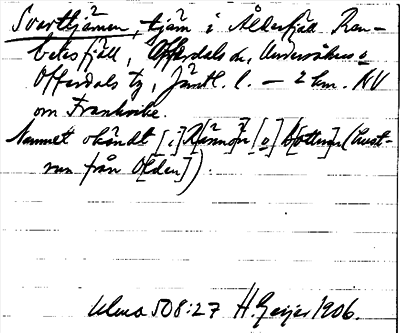 Svarttjärnen, tjärn i Ålderfjäll. Ran-
betesfjäll, Offerdals sn, Undersåkers o
Offerdals tg, Jämtl. l. — 2 km. NV
om Frankvike.
Namnet okändt [i] Rännön [o] bottnen (hust-
run från Olden).
Ulma 508:27 H. Geijer 1906.